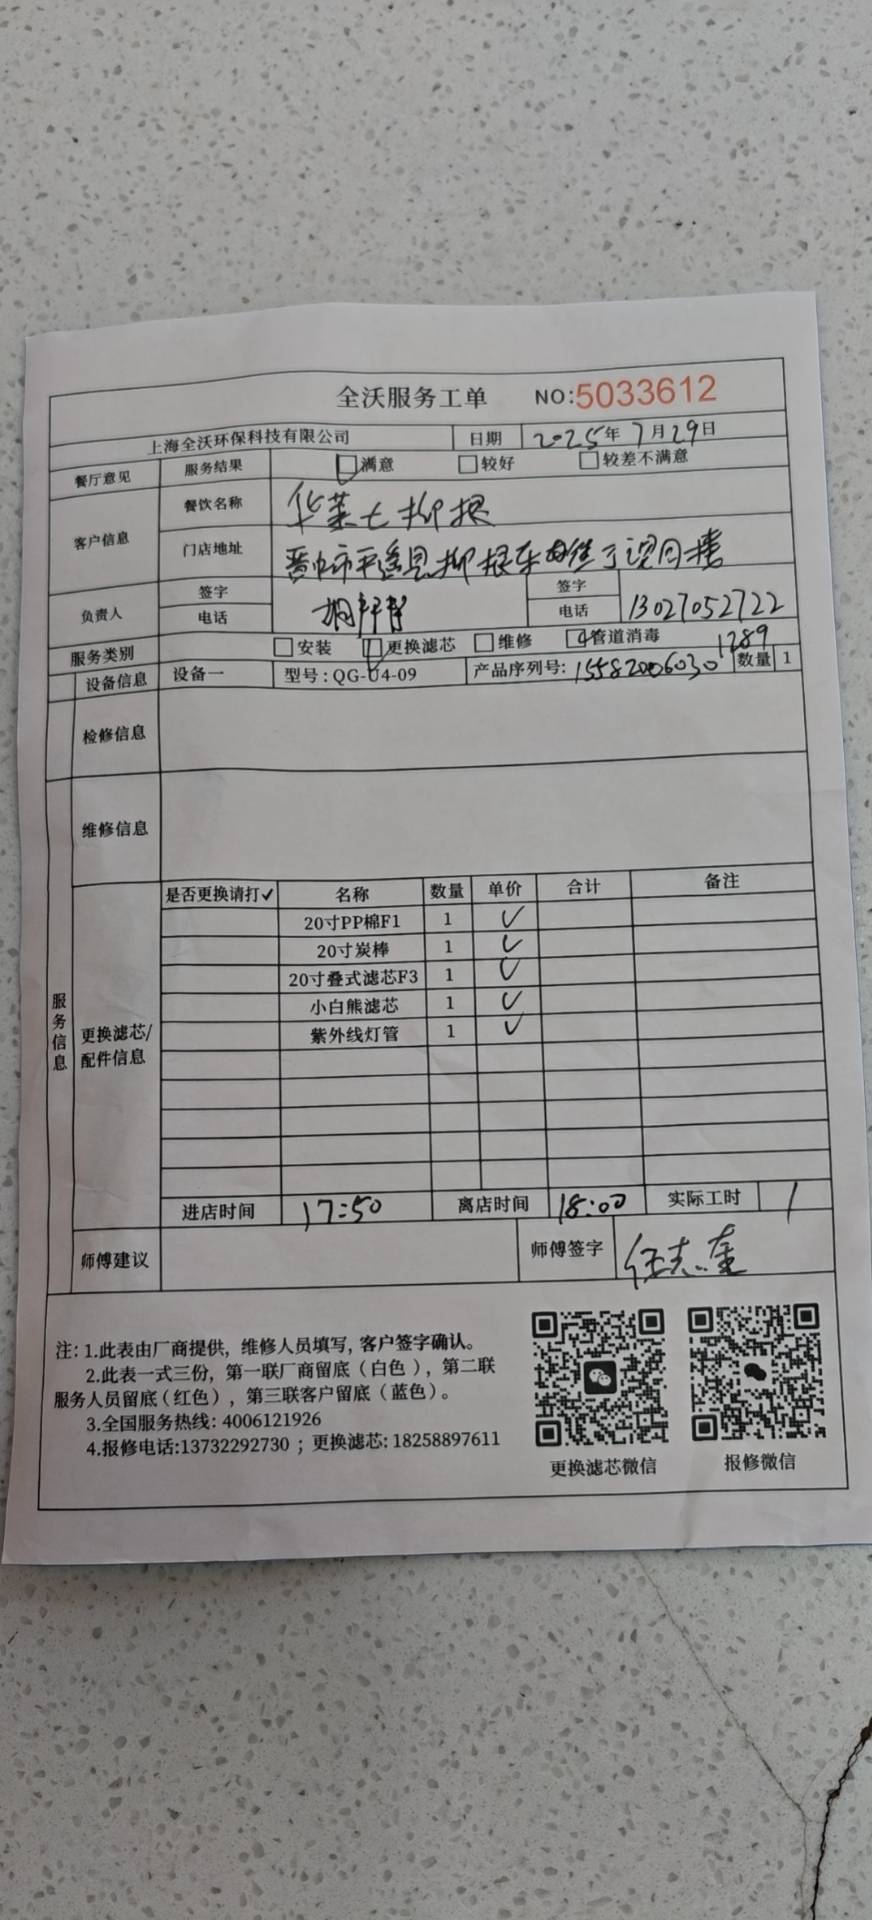 全沃服务工单 NO:5033612
上海全沃环保科技有限公司 日期 2025年7月29日
餐厅意见 服务结果 满意 较好 较差不满意
客户信息 餐饮名称 华莱士柳根
门店地址 晋中市平遥县柳根东路 望月楼
负责人 签字 签字
电话 电话 13027052722
服务类别 安装 更换滤芯 维修 管道消毒
设备信息 设备一 型号:QG-U4-09 产品序列号: 155820060301289 数量 1
检修信息
维修信息
服务信息
更换滤芯/配件信息
是否更换请打✓ 名称 数量 单价 合计 备注
20寸PP棉F1 1 ✓
20寸炭棒 1 ✓
20寸叠式滤芯F3 1 ✓
小白熊滤芯 1 ✓
紫外线灯管 1 ✓
进店时间 17:50 离店时间 18:00 实际工时 1
师傅建议 师傅签字 任志奎
注: 1.此表由厂商提供, 维修人员填写, 客户签字确认。
2.此表一式三份, 第一联厂商留底(白色), 第二联
服务人员留底(红色), 第三联客户留底(蓝色)。
3.全国服务热线: 4006121926
4.报修电话:13732292730 ; 更换滤芯: 18258897611
更换滤芯微信 报修微信